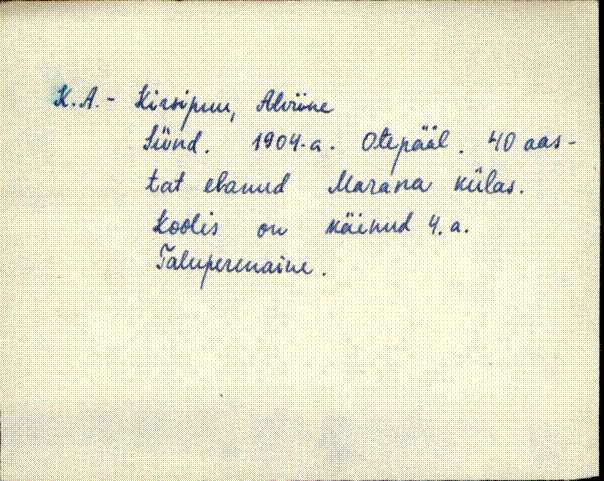 K.A. - Kirsipuu, Alviine
Sünd. 1904.a. Otepääl. 40 aas-
tat elanud Marana külas.
Koolis on käinud 4.a.
Taluperenaine.